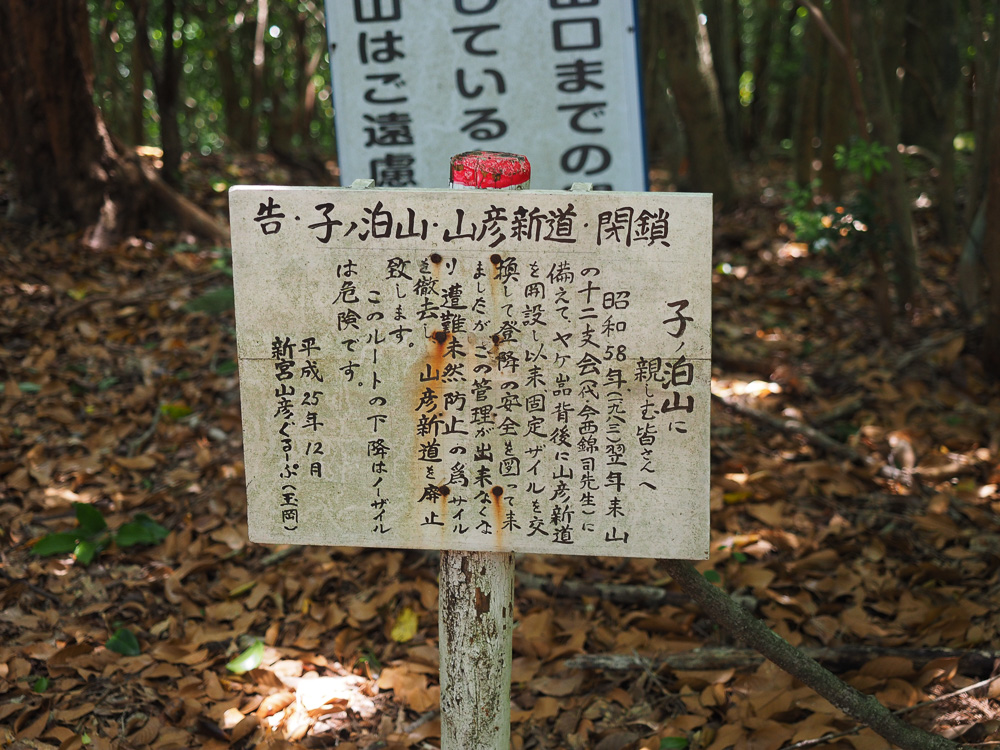 出口までの
している
山はご遠慮
告・子ノ泊山・山彦新道・閉鎖
子ノ泊山に
親しむ皆さんへ
昭和58年(一九八三)翌年来山
の十二支会(代今西錦司先生)に
備えて、ヤケ嵓背後に山彦新道
を開設し以来、固定ザイルを交
換して登降の安全を図って来
ましたがこの管理が出来なくな
り遭難未然防止の為ザイル
を撤去し山彦新道を廃止
致します。
このルートの下降はノーザイル
は危険です。
平成25年12月
新宮山彦ぐるーぷ(玉岡)